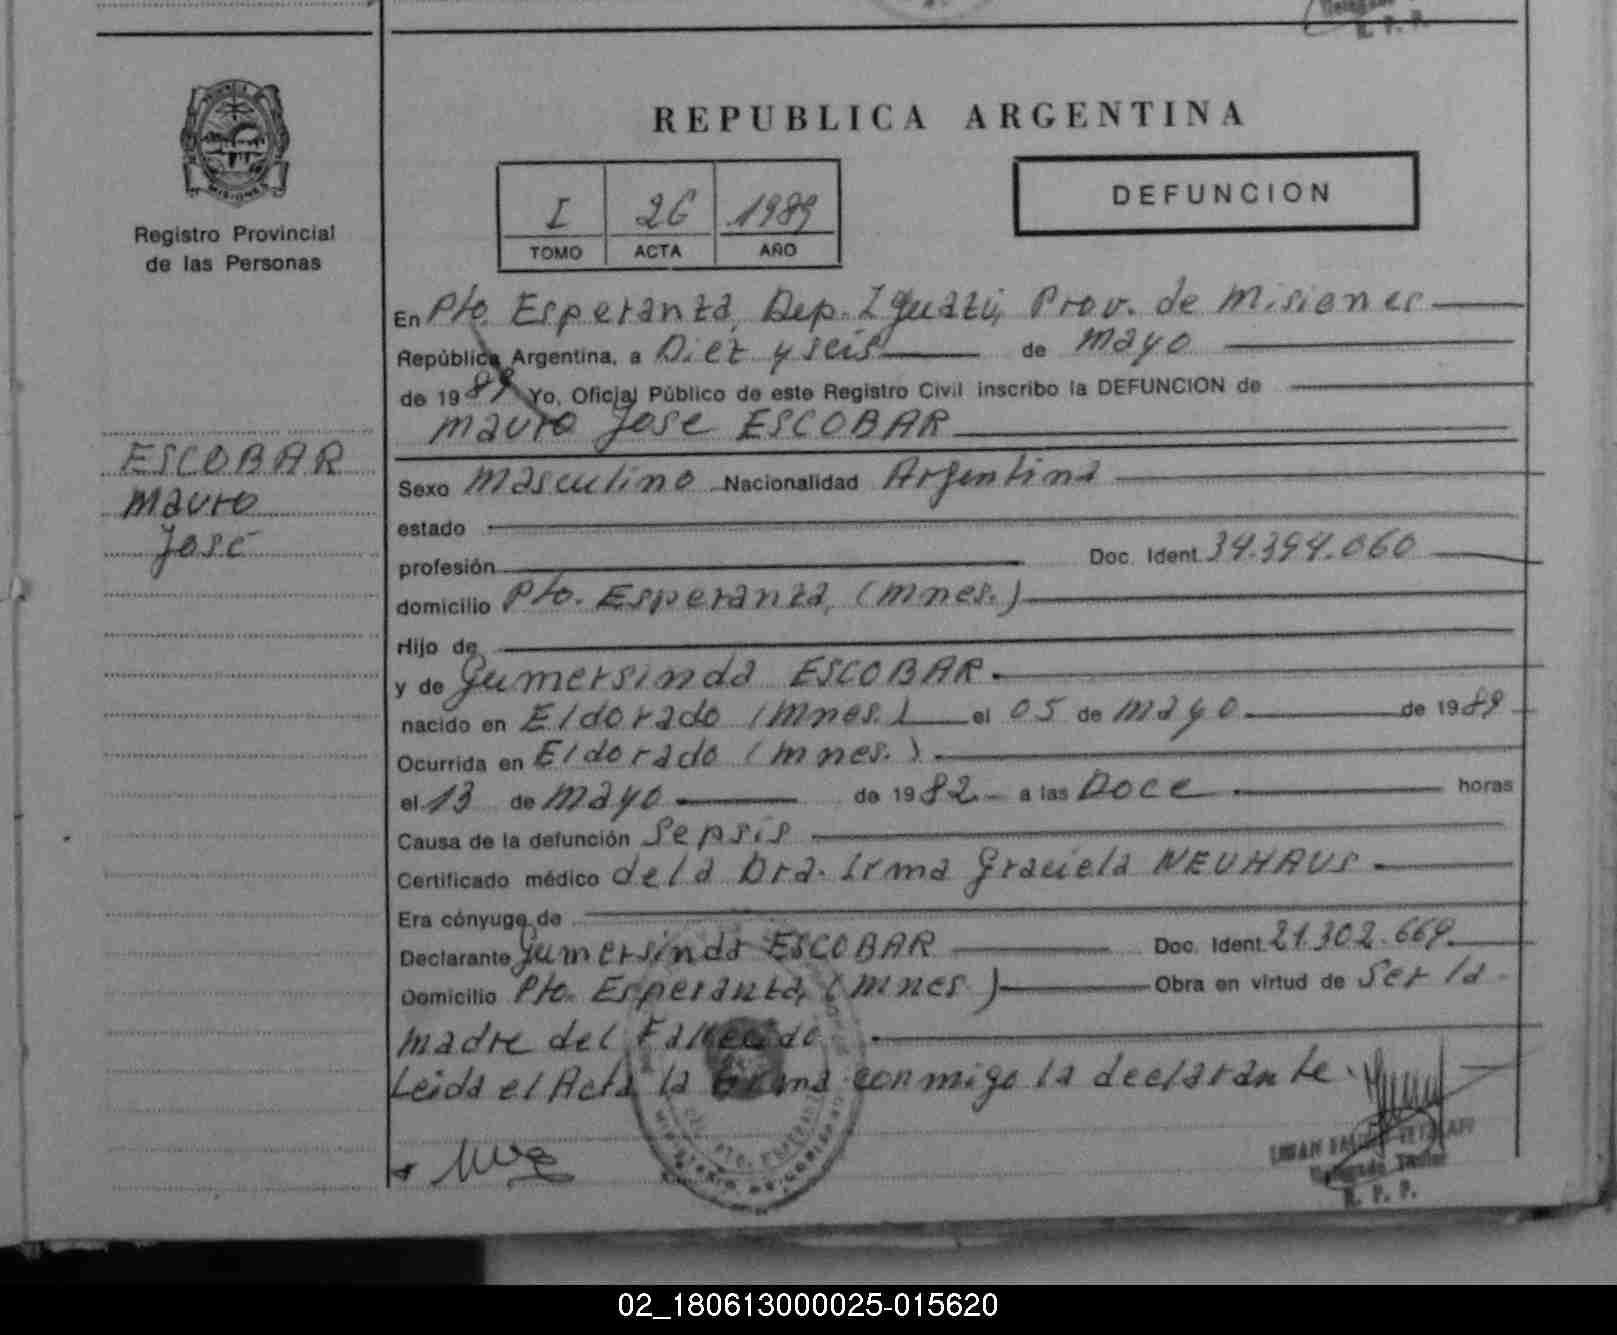 R. P. P.
REPUBLICA ARGENTINA
MISIONES
Registro Provincial
de las Personas
I 26 1989
TOMO ACTA AÑO
DEFUNCION
En Pto. Esperanza, Dep. Iguazú, Prov. de Misiones
República Argentina, a Diez y seis de Mayo
de 1989 Yo, Oficial Público de este Registro Civil inscribo la DEFUNCION de
Mauro José ESCOBAR
ESCOBAR
Mauro
José
Sexo Masculino Nacionalidad Argentina
estado
profesión Doc. Ident. 34.394.060
domicilio Pto. Esperanza, (Mnes.)
Hijo de
y de Gumersinda ESCOBAR.
nacido en Eldorado (Mnes.) el 05 de Mayo de 1989
Ocurrida en Eldorado (Mnes.)
el 13 de Mayo de 1982 a las Doce horas
Causa de la defunción Sepsis
Certificado médico de la Dra. Irma Graciela NEUHAUS
Era cónyuge de
Declarante Gumersinda ESCOBAR Doc. Ident. 21.302.669
Domicilio Pto. Esperanza, (Mnes.) Obra en virtud de Ser la
Madre del Fallecido
Leida el Acta la firma conmigo la declarante.
Delegado Titular
R. P. P.
02_180613000025-015620